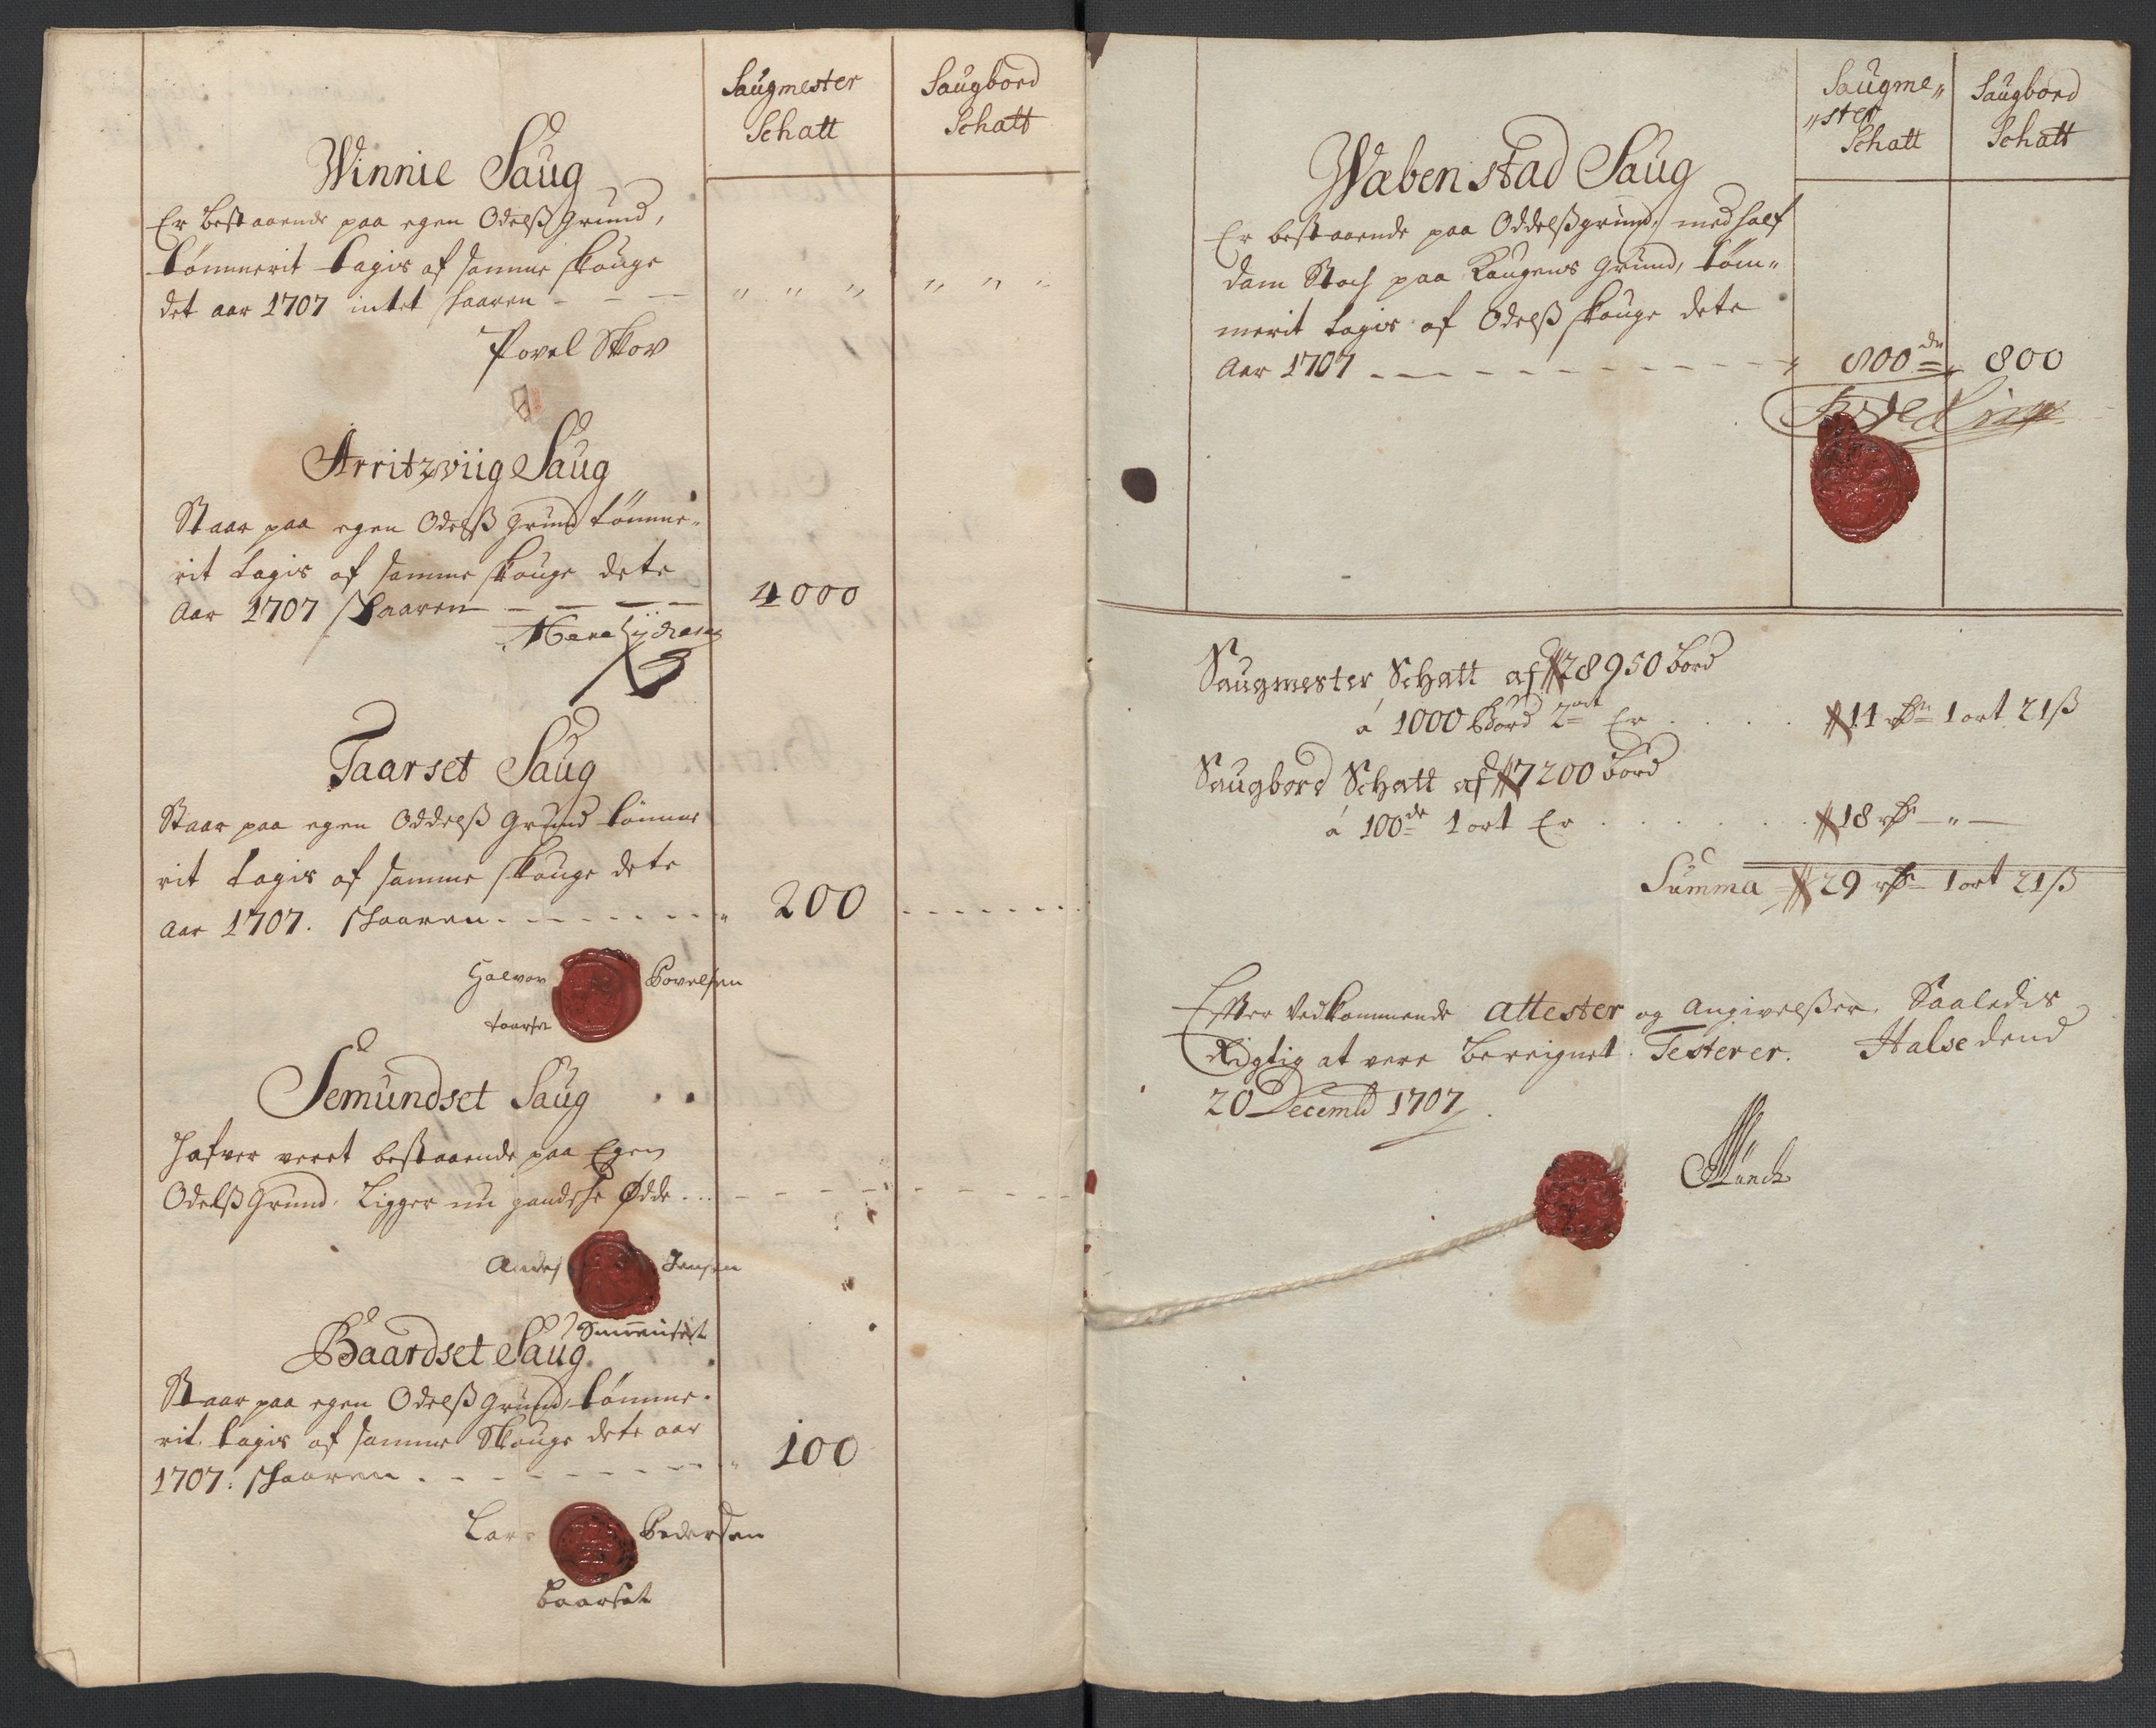 Saugmester
Schatt
Saugbord
Schatt
Winnie Saug
Er bestaaende paa egen Odelß grund,
tømmerit tagis af samme skouge
det aar 1707 intet skaaren - - -
" " " " " "
Povel Skov
Arritzviig Saug
Staar paa egen Odelß grund tømme-
rit tagis af samme skouge dete
Aar 1707 skaaren - - - - 4000
Taarset Saug
Staar paa egen Oddelß grund tømme
rit tagis af samme skouge dete
Aar 1707. skaaren - - - - - - " 200
Halvor Povelsen
taarset
Semundset Saug
Hafver veret bestaaende paa Egen
Odelß grund, Ligger nu gandske Ødde - - -
Andes Jensen
Baardset Saug
Staar paa egen Odelß grund, tømme-
rit tagis af samme Skouge dete aar
1707: skaaren - - - - - - - " 100
Lars Pedersen
Baarset
Saugme„
„ster
Schatt
Saugbord
Schatt
Wæbenstad Saug
Er bestaaende paa Oddelßgrund, med half
dam Stoch paa Kongens grund, tøm„
merit tagis af Odelß skouge dete
Aar 1707 - - - - - - - - - - 800de 800
Saugmester Schatt af 28950 bord
á 1000 Bord 2ort Er . . . . 11 rdr 1 ort 21ß
Saugbord Schatt af 7200 bord
á 100de 1 ort Er . . . . . . 18 rdr - " -
Summa 29 rdr 1 ort 21ß
Efter Vedkommende attester og Angivelßer. Saaledis
Rigtig at vere bereignet. Testerer. Halse dend
20 Decembr 1707
Münch